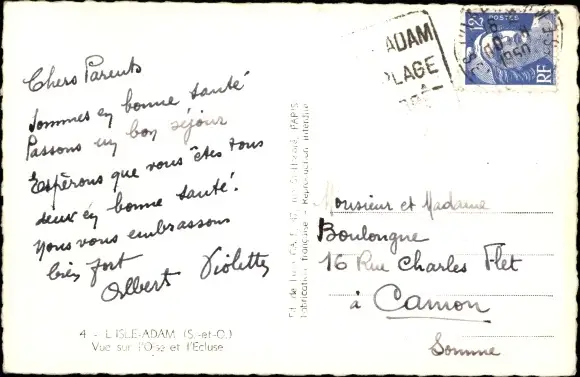 Chers Parents
Sommes en bonne santé
Passons un bon séjour
Espérons que vous êtes tous
deux en bonne santé.
Nous vous embrassons
bien fort
Albert Violette
4 - L'ISLE-ADAM (S.-et-O.)
Vue sur l'Oise et l'Écluse
PARIS
Fabrication française - Reproduction interdite
ADAM
PLAGE
12F
POSTES
1950
RF
Monsieur et Madame
Boulongne
16 Rue Charles Flet
à Camon
Somme